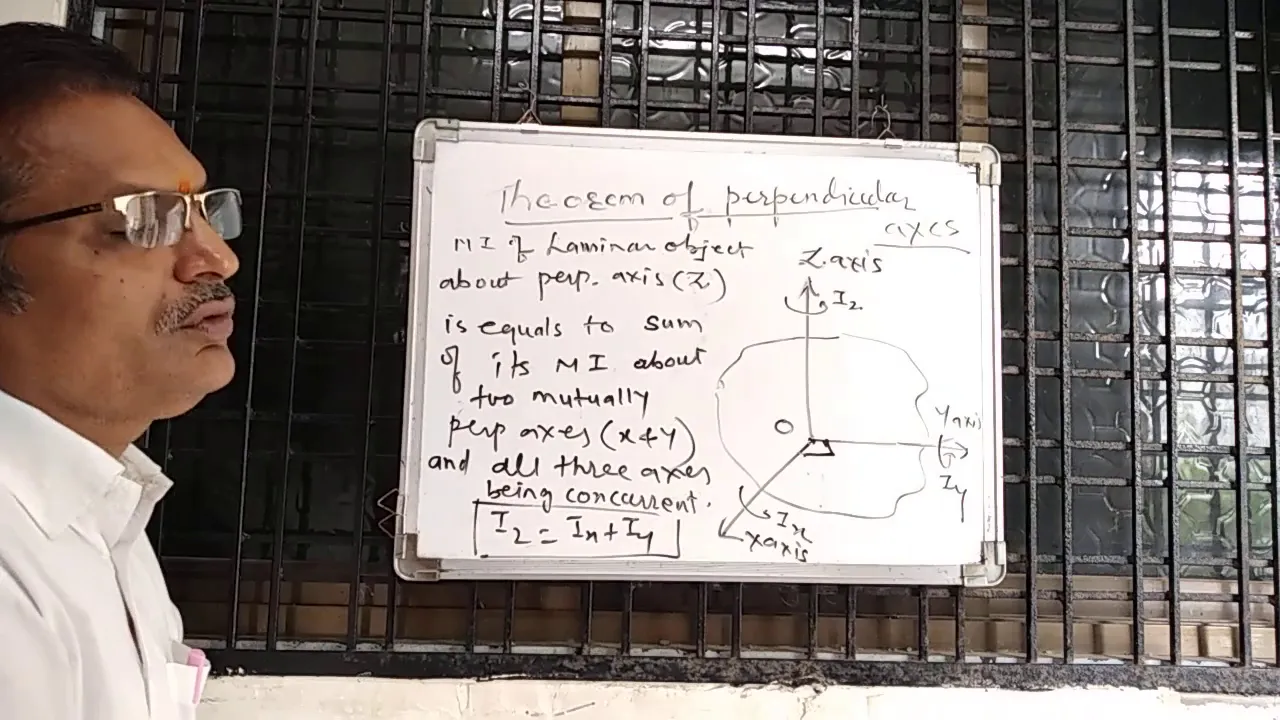 Theorem of perpendicular
axes
MI of Laminar object
about perp. axis (Z)
is equals to sum
of its MI about
two mutually
perp axes (x & y)
and all three axes
being concurrent.
Iz = Ix + Iy
Z.axis
Iz
O
Y axis
Iy
Ix
X axis